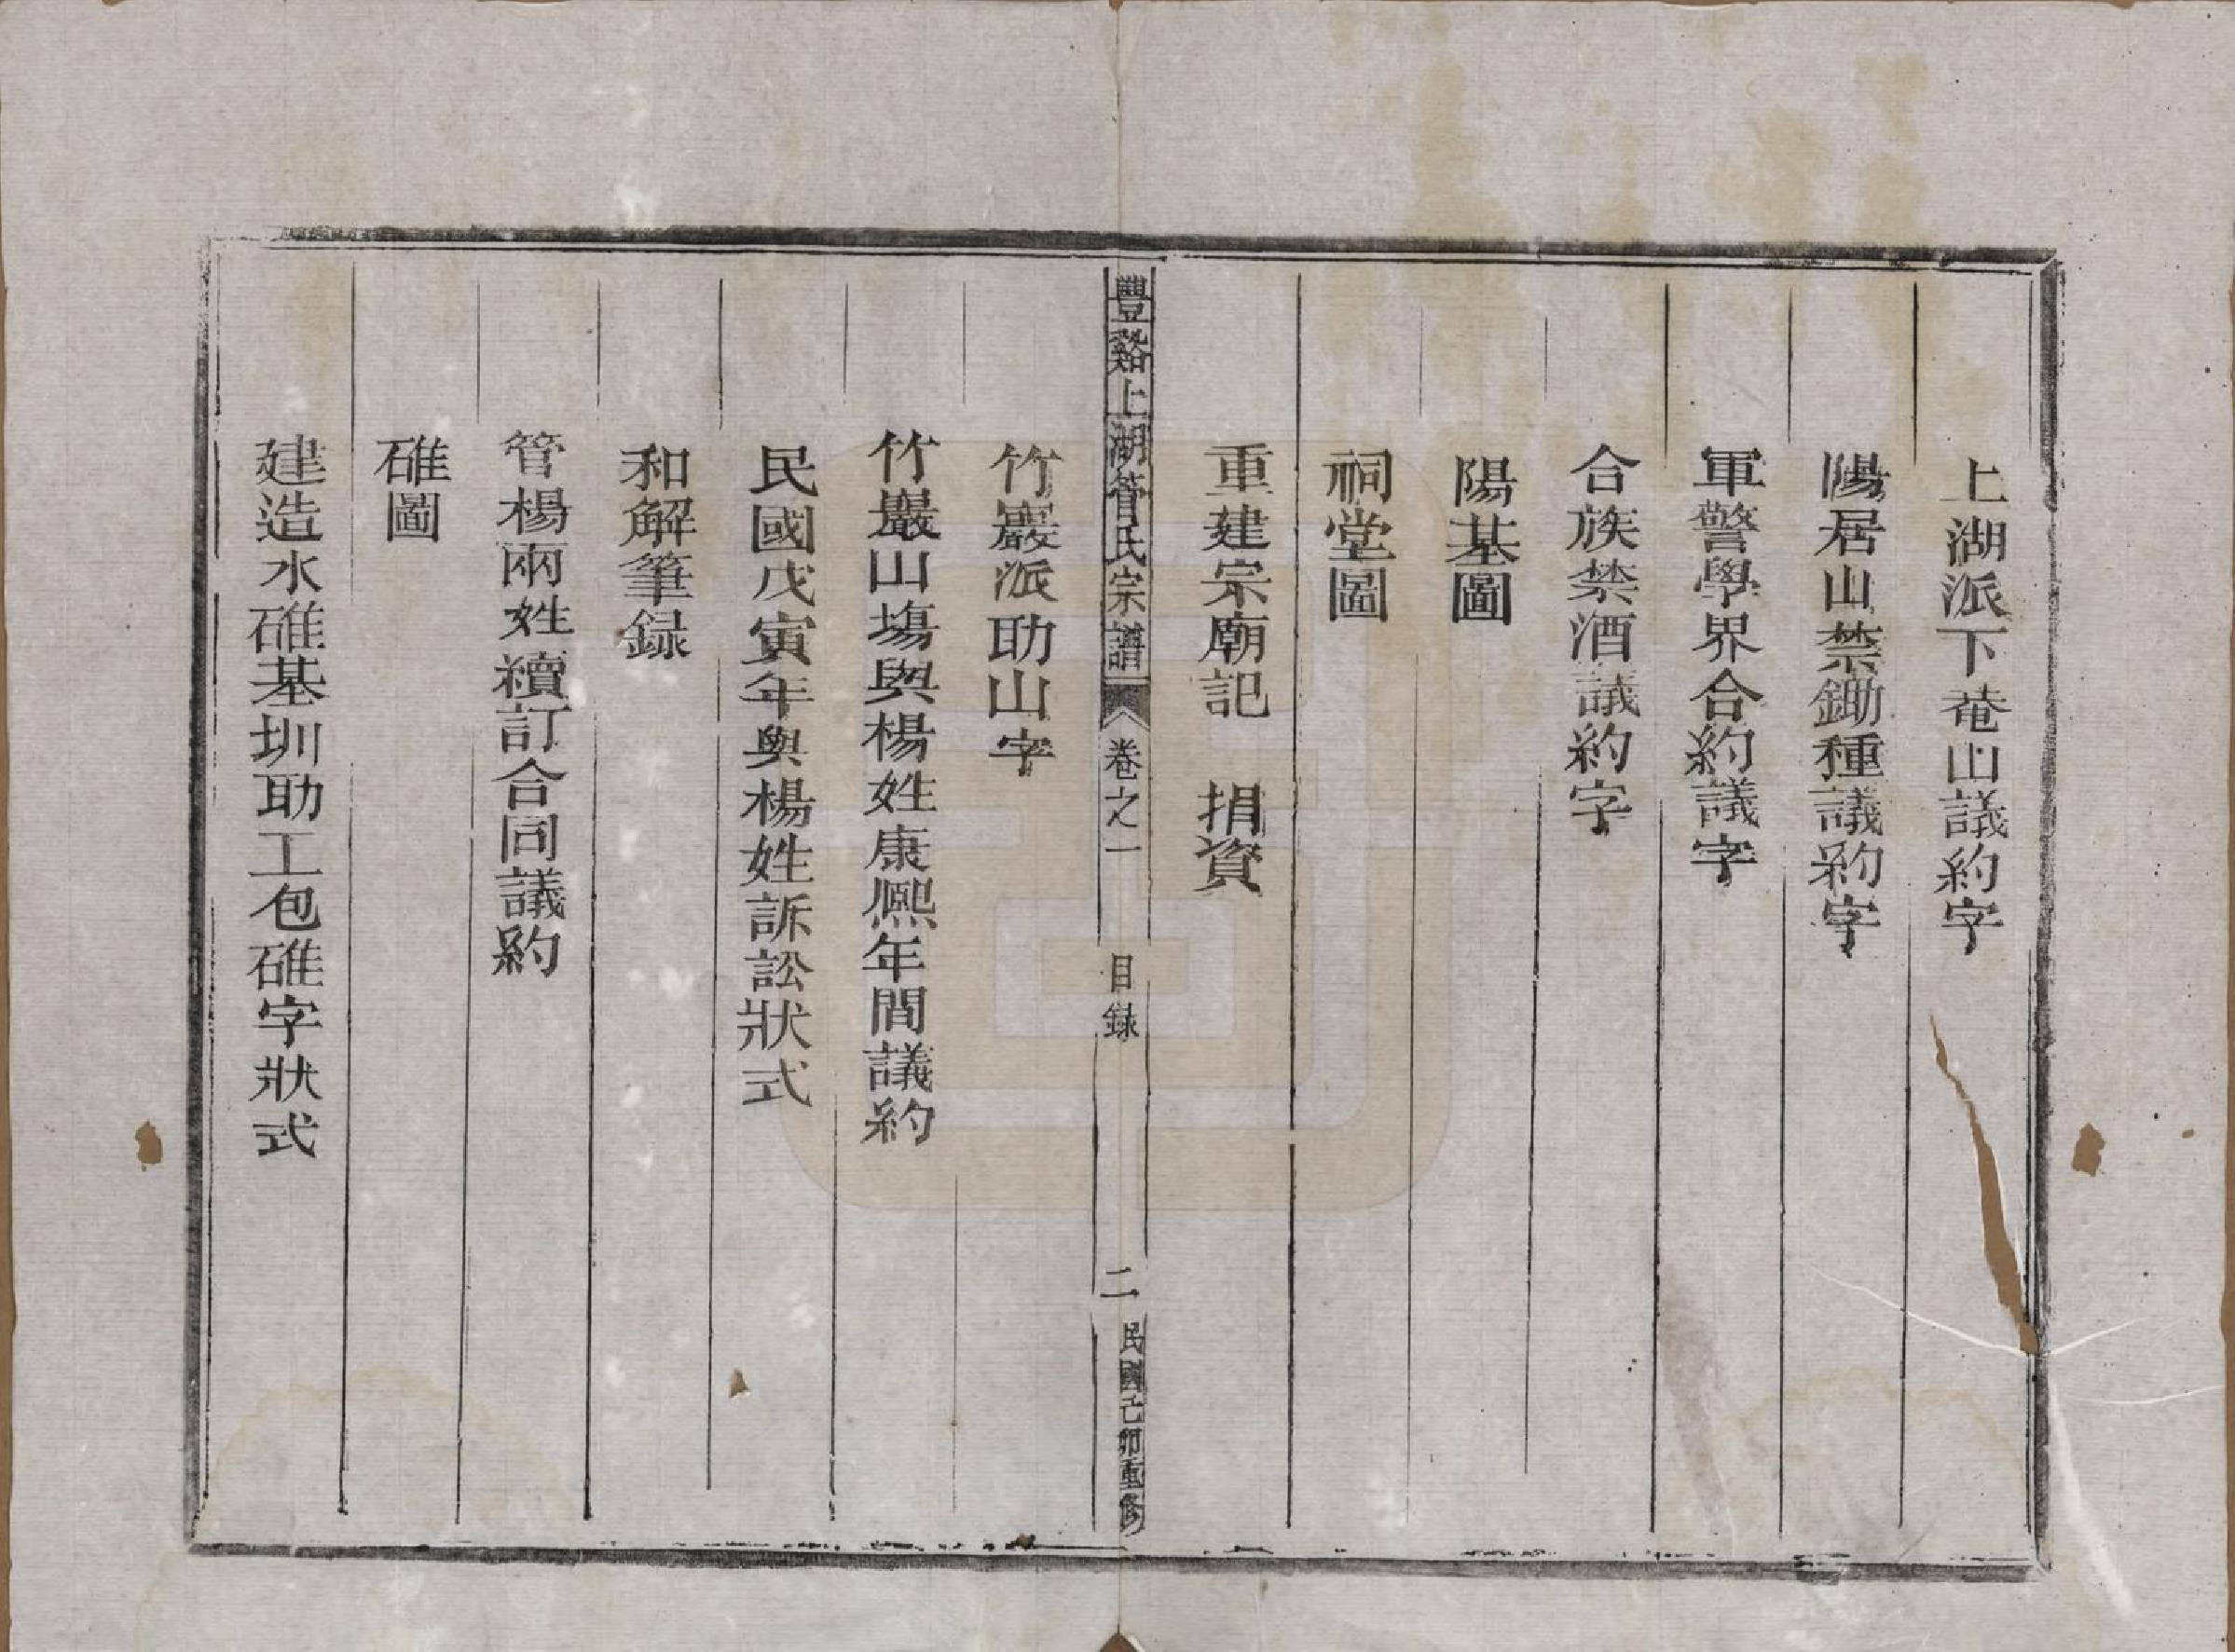 上湖派下菴山議約字
陽居山禁鋤種議約字
軍警學界合約議字
合族禁酒議約字
陽基圖
祠堂圖
重建宗廟記　捐資
豐谿上湖管氏宗譜 卷之一 目録 二 民國己卯重修
竹巖派助山字
竹巖山塲與楊姓康熈年間議約
民國戊寅年與楊姓訴訟狀式
和解筆録
管楊兩姓續訂合同議約
碓圖
建造水碓基圳助工包碓字狀式